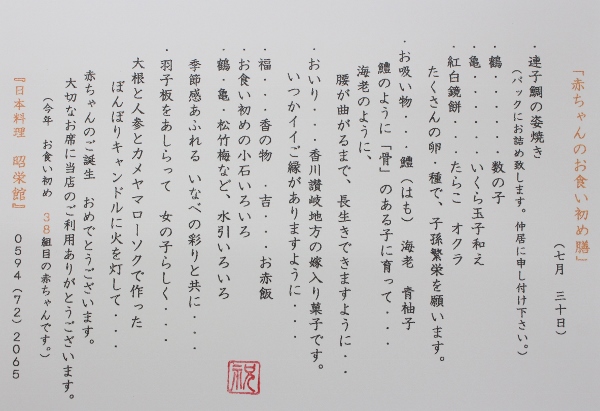 「赤ちゃんのお食い初め膳」
（七月　三十日）
・連子鯛の姿焼き
（パックにお詰め致します。仲居に申し付け下さい。）
・鶴・・・・・・数の子
・亀・・・・・・いくら玉子和え
・紅白鏡餅・・・たらこ　オクラ
たくさんの卵・種で、子孫繁栄を願います。
・お吸い物・・・鱧（はも）　海老　青柚子
鱧のように「骨」のある子に育って・・・
海老のように、
腰が曲がるまで、長生きできますように・・・
・おいり・・・・香川讃岐地方の嫁入り菓子です。
いつかイイご縁がありますように・・・
・福・・・香の物　・吉・・・お赤飯
・お食い初めの小石いろいろ
・鶴・亀・松竹梅など、水引いろいろ
季節感あふれる　いなべの彩りと共に・・・
・羽子板をあしらって　女の子らしく・・・
大根と人参とカメヤマローソクで作った
ぼんぼりキャンドルに火を灯して・・・
赤ちゃんのご誕生　おめでとうございます。
大切なお席に当店のご利用ありがとうございます。
（今年　お食い初め　３８組目の赤ちゃんです。）
『日本料理　昭栄館』　０５９４（７２）２０６５
祝